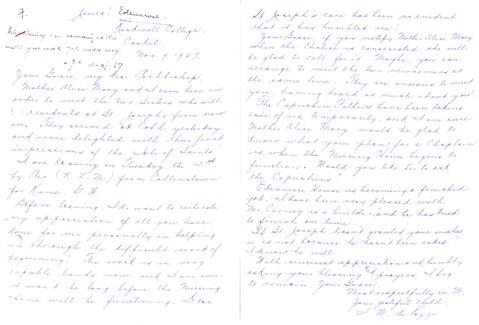 Edenmore
Rockwell College,
Cashel.
Nov. 9, 1957.
Your Grace, my dear Archbishop,
Mother Alice Mary and I came here in
order to meet the two Sisters who will
residents at St Joseph's from now
They arrived at Cobh yesterday
and were delighted with their first
impressions of the Isle of Saints.
I am leaving on Tuesday the 12th
by Air (K. L. M.) from Collinstown
for Rome,
Before leaving, I do want to reiterate
my appreciation of all you have
done for me personally in helping
us through the difficult work of
beginning. The work is in very
capable hands now, and I am sure
it won't be long before the Nursing
Home will be functioning. Dear
St Joseph's care has been so evident
that it has humbled me!
Your Grace, if you notify Mother Alice Mary
when the Chapel is consecrated, she will
be glad to call for it. Maybe, you can
arrange to meet the two newcomers at
the same time. They are anxious to meet
you, having heard so much about you.
The Capuchin Fathers have been taking
care of us temporarily, and I am sure
Mother Alice Mary would be glad to
know what your plans for a Chaplain
is, when the Nursing Home begins to
function. Would you like to ask
the Capuchins?
Edenmore House is becoming a finished
job. I have been very pleased with
Mr. Cooney as a builder, and he has tried
to finish on time.
If St Joseph hasn't granted your wishes
it is not because he hasn't been asked!
I know he will.
With sincerest appreciation, and humbly
asking your blessing & prayers, I beg
to remain, Your Grace,
Most respectfully in
Your grateful child,